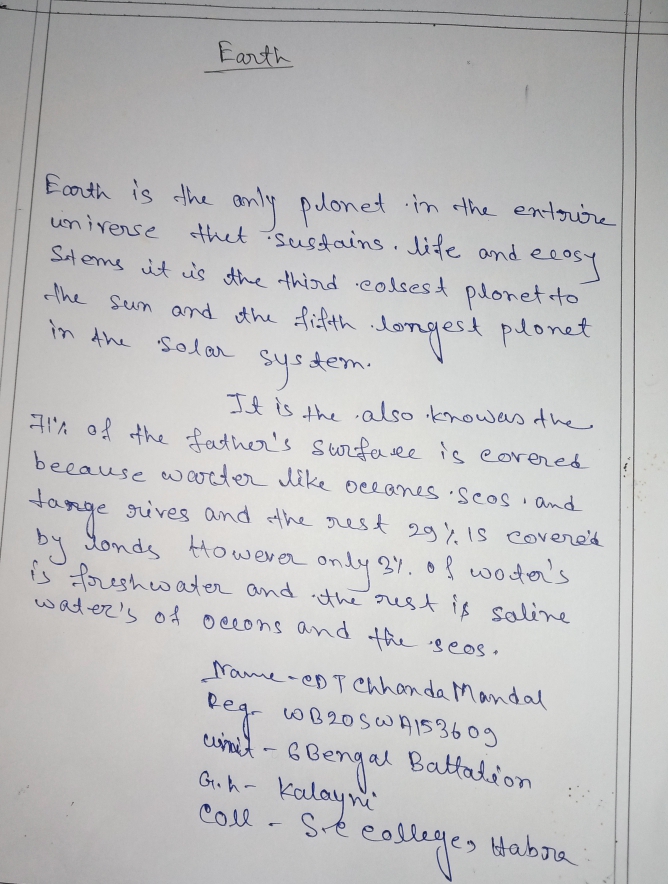 Earth
Earth is the only plonet in the entorire
universe thet sustains. life and ecosy
stems it is the third colsest plonet to
the sun and the fifth longest plonet
in the solar system.
It is the also knowas the
71% of the father's surfacee is covered
because warter like oceanes seos, and
tange rives and the rest 29% is covered
by londs However only 3%. of woter's
is freshwater and the rest is saline
water's of oceons and the seos.
Name - CDT Chhanda Mandal
Reg- WB20SWA153609
unit - 6 Bengal Battalion
G.h - Kalayni
Coll - S.c college, Habra